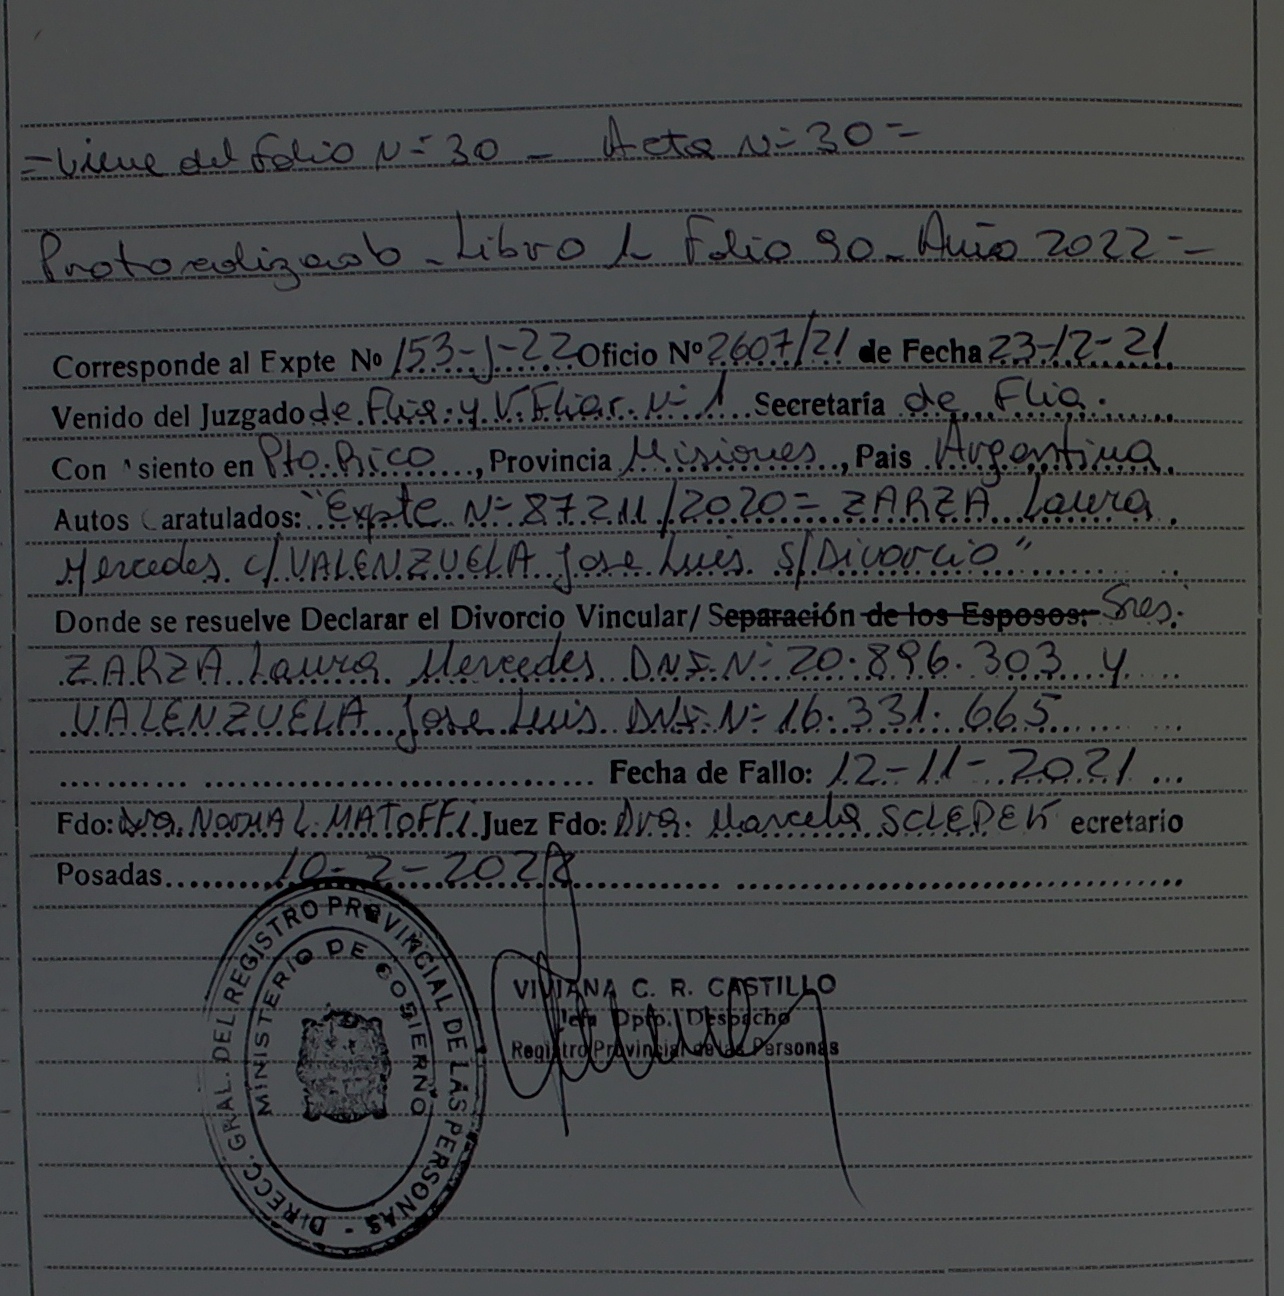 =Viene del Folio Nº 30 - Acta Nº 30=
Protocolizado - Libro 1 Folio 90 - Año 2022 =
Corresponde al Expte Nº 153-J-22 Oficio Nº 2607/21 de Fecha 23-12-21
Venido del Juzgado de Flia. y V. Fliar. Nº 1 Secretaría de Flia.
Con siento en Pto. Rico, Provincia Misiones, Pais Argentina.
Autos Caratulados: "Expte Nº 87211/2020= ZARZA Laura
Mercedes c/ VALENZUELA Jose Luis S/ Divorcio"
Donde se resuelve Declarar el Divorcio Vincular/ Separación de los Esposos: Sres.
ZARZA Laura Mercedes DNI. Nº 20.896.303 y
VALENZUELA Jose Luis DNI. Nº 16.331.665
Fecha de Fallo: 12-11-2021
Fdo: Dra. NORMA L. MATOFFI Juez Fdo: Dra. Marcela SCLEPEK ecretario
Posadas 10-2-2022
DIRECC. GRAL. DEL REGISTRO PROVINCIAL DE LAS PERSONAS -
MINISTERIO DE GOBIERNO
VIVIANA C. R. CASTILLO
Jefa Dpto. Despacho
Registro Provincial de las Personas